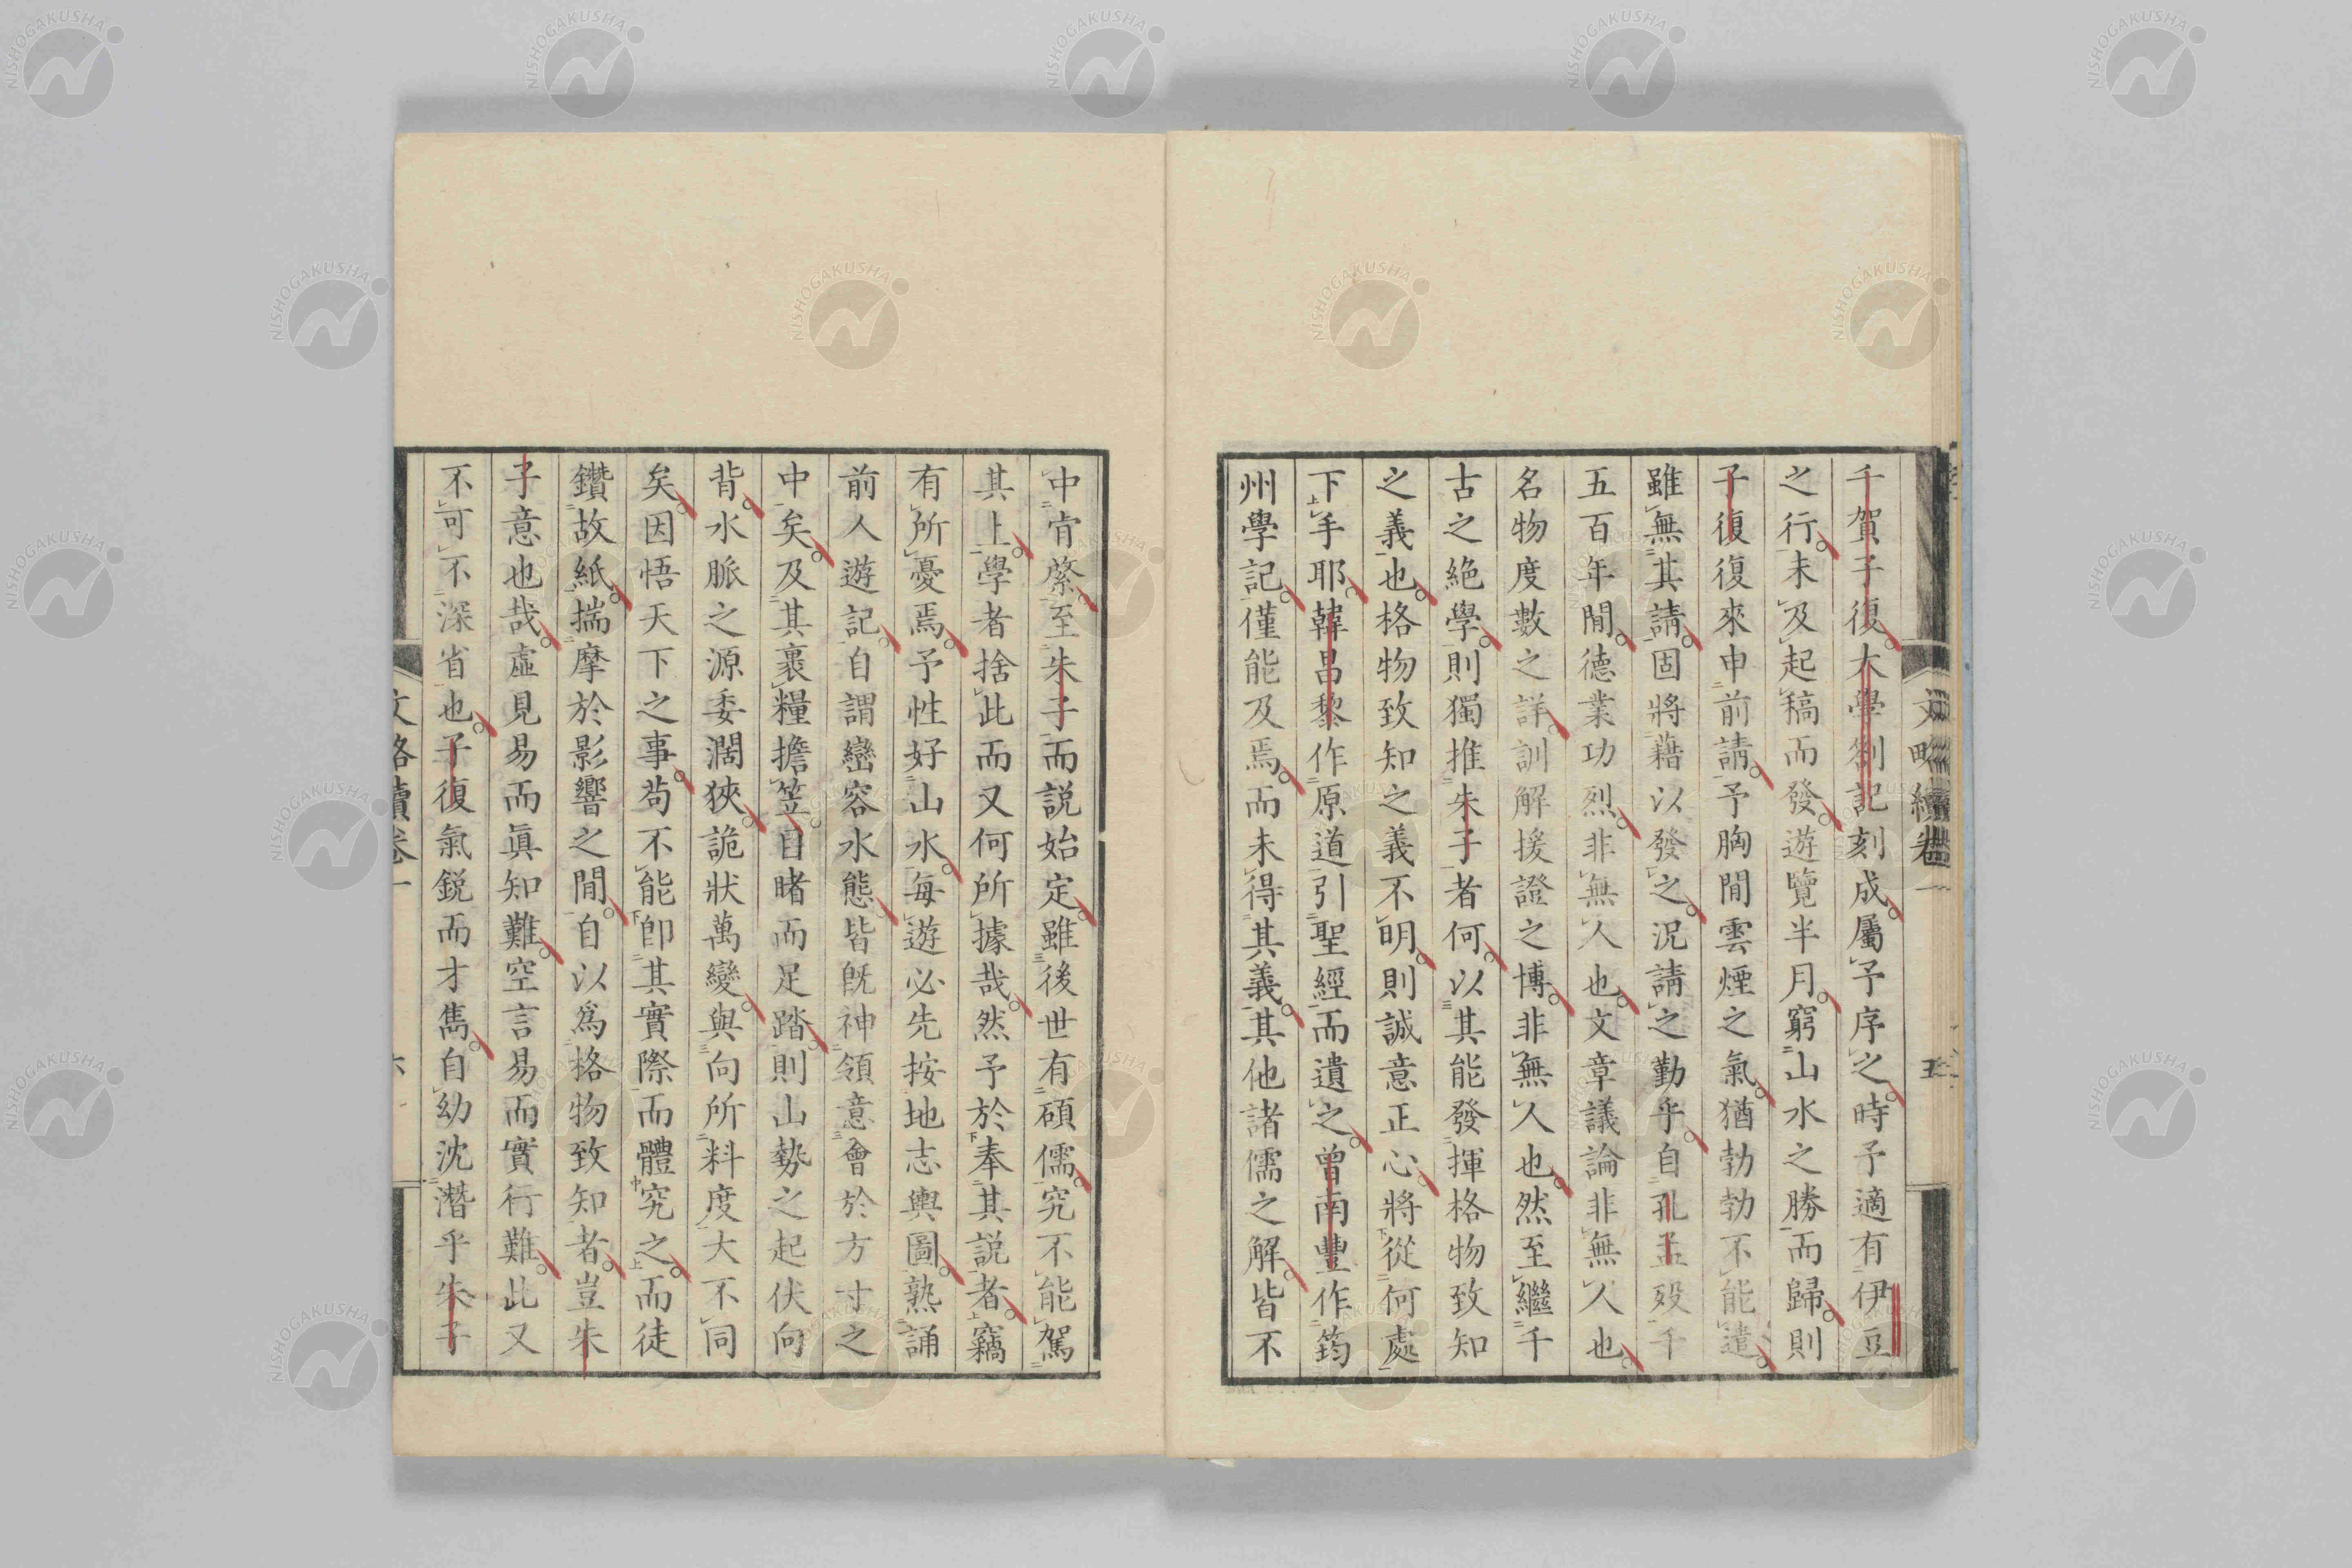 千賀子復大學劄記刻成屬予序之時予適有伊豆
之行未及起稿而發遊覽半月窮山水之勝而歸則
子復復來申前請予胸閒雲煙之氣猶勃勃不能遣
雖無其請固將藉以發之況請之勤乎自孔孟歿千
五百年閒德業功烈非無人也文章議論非無人也
名物度數之詳訓解援證之博非無人也然至繼千
古之絶學則獨推朱子者何以其能發揮格物致知
之義也格物致知之義不明則誠意正心將從何處
下手耶韓昌黎作原道引聖經而遺之曾南豐作筠
州學記僅能及焉而未得其義其他諸儒之解皆不
中肯綮至朱子而説始定雖後世有碩儒究不能駕
其上學者捨此而又何所據哉然予於奉其説者竊
有所憂焉予性好山水毎遊必先按地志輿圖熟誦
前人遊記自謂巒容水態皆既神領意會於方寸之
中矣及其裹糧擔笠目睹而足踏則山勢之起伏向
背水脈之源委濶狹詭狀萬變與向所料度大不同
矣因悟天下之事苟不能卽其實際而體究之而徒
鑽故紙揣摩於影響之閒自以爲格物致知者豈朱
子意也哉虛見易而眞知難空言易而實行難此又
不可不深省也子復氣鋭而才雋自幼沈潛乎朱子
文略續卷一
五
NISHOGAKUSHA